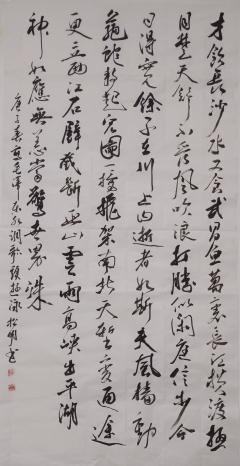 才飲長沙水又食武昌魚萬里長江橫渡極
目楚天舒不管風吹浪打勝似閑庭信步今
日得寬餘子在川上曰逝者如斯夫風檣動
龜蛇靜起宏圖一橋飛架南北天塹變通途
更立西江石壁截斷巫山雲雨高峽出平湖
神女應無恙當驚世界殊
庚子春寫毛澤東水調歌頭游泳